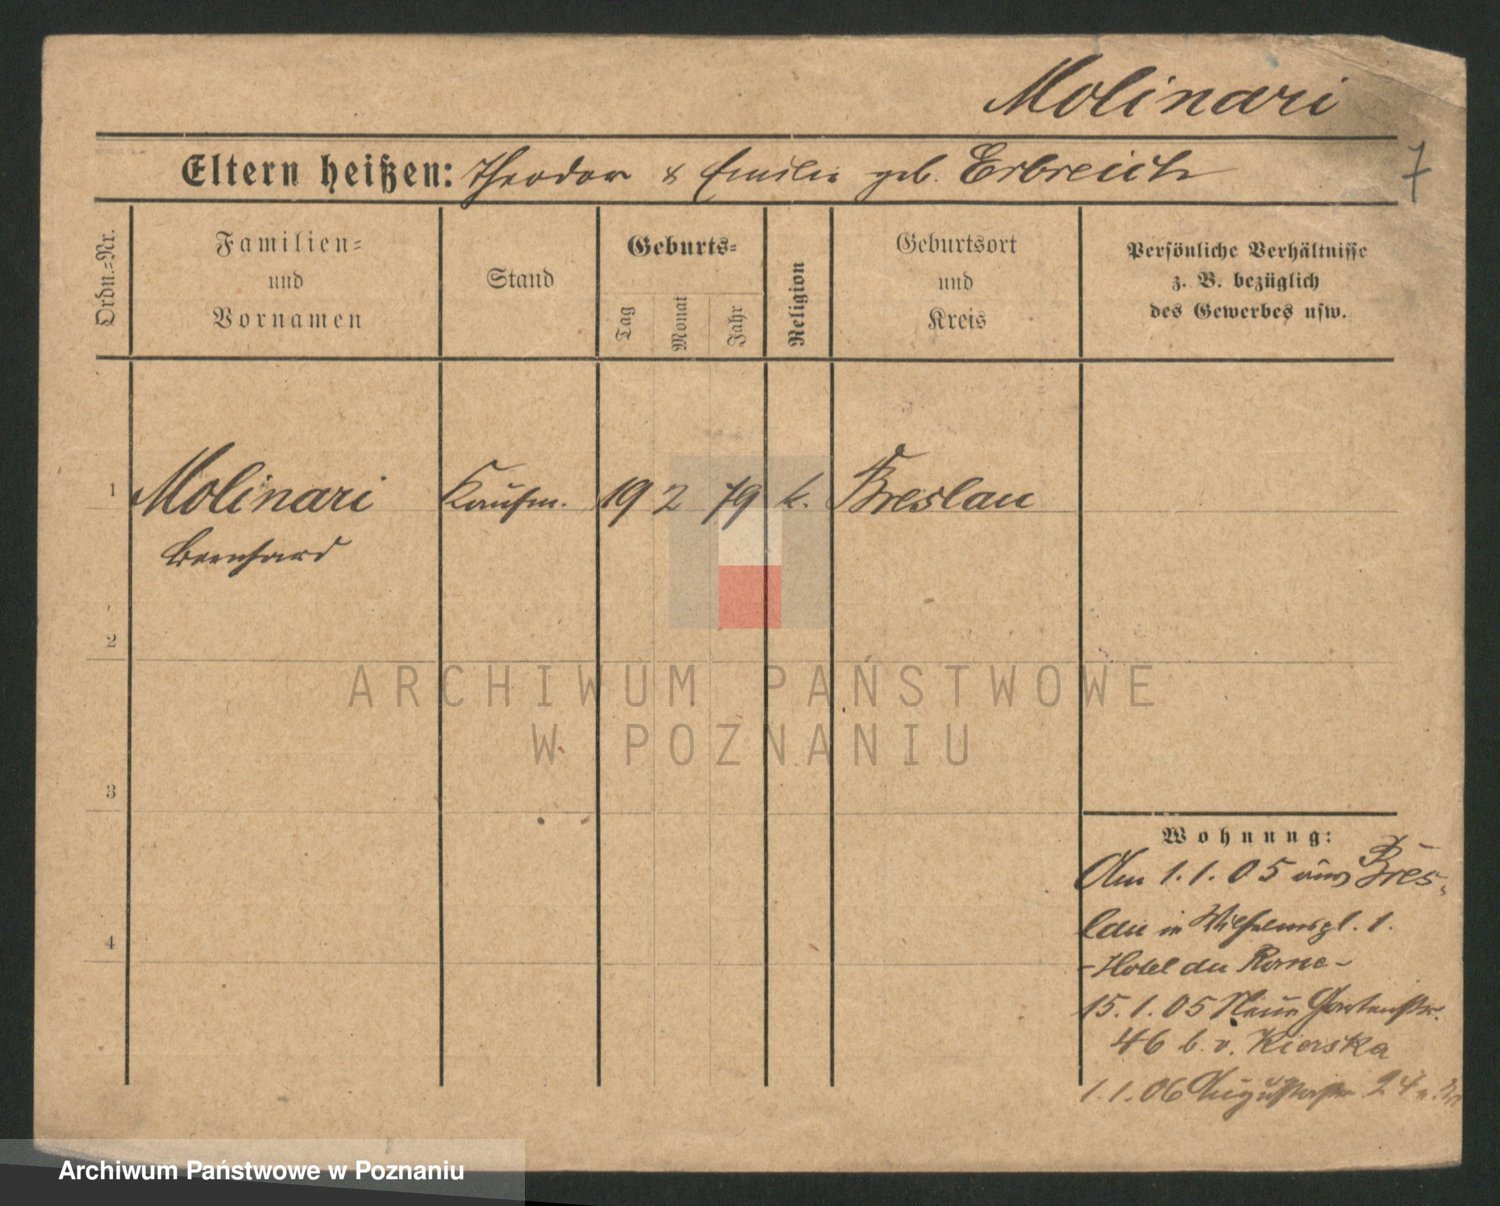 Molinari
7
Eltern heißen: Theodor & Emilie geb. Erbreich
Ordn.=Nr.
Familien=
und
Vornamen
Stand
Geburts=
Tag
Monat
Jahr
Religion
Geburtsort
und
Kreis
Persönliche Verhältnisse
z. B. bezüglich
des Gewerbes usw.
1 Molinari Kaufm. 19 2 79 k. Breslau
Bernhard
2
ARCHIWUM PAŃSTWOWE
W POZNANIU
3
4
Wohnung:
Am 1.1.05 aus Bres-
lau in Wilhelmspl. 1.
-Hotel de Rome-
15.1.05 Neue Gartenstr.
46 b. v. Kierska
1.1.06 Augustastr. 24
Archiwum Państwowe w Poznaniu